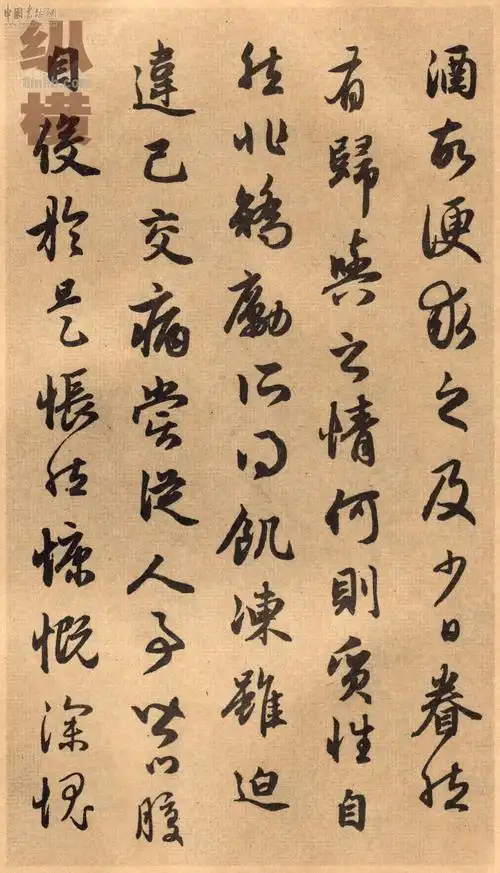 酒故便求之及少日眷然
有歸與之情何則質性自
然非矯勵所得飢凍雖迫
違己交病嘗從人事皆口腹
自役於是悵然慷慨深愧
纵横